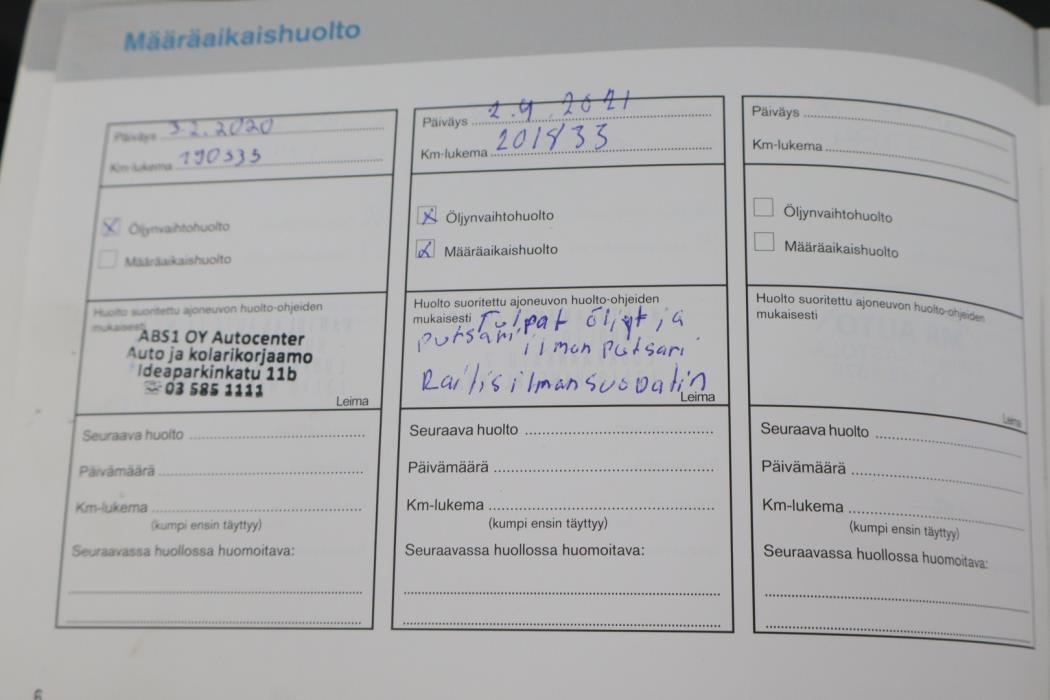 Määräaikaishuolto
Päiväys 3.2.2020
Km-lukema 190333
☒ Öljynvaihtohuolto
☐ Määräaikaishuolto
Huolto suoritettu ajoneuvon huolto-ohjeiden
mukaisesti
ABS1 OY Autocenter
Auto ja kolarikorjaamo
Ideaparkinkatu 11b
☎ 03 585 1111
Leima
Seuraava huolto
Päivämäärä
Km-lukema
(kumpi ensin täyttyy)
Seuraavassa huollossa huomoitava:
Päiväys 2.9.2021
Km-lukema 201833
☒ Öljynvaihtohuolto
☒ Määräaikaishuolto
Huolto suoritettu ajoneuvon huolto-ohjeiden
mukaisesti Tulpat öljyt ja
putsari, ilman putsari
Raitisilmansuodatin
Leima
Seuraava huolto
Päivämäärä
Km-lukema
(kumpi ensin täyttyy)
Seuraavassa huollossa huomoitava:
Päiväys
Km-lukema
☐ Öljynvaihtohuolto
☐ Määräaikaishuolto
Huolto suoritettu ajoneuvon huolto-ohjeiden
mukaisesti
Leima
Seuraava huolto
Päivämäärä
Km-lukema
(kumpi ensin täyttyy)
Seuraavassa huollossa huomoitava:
6